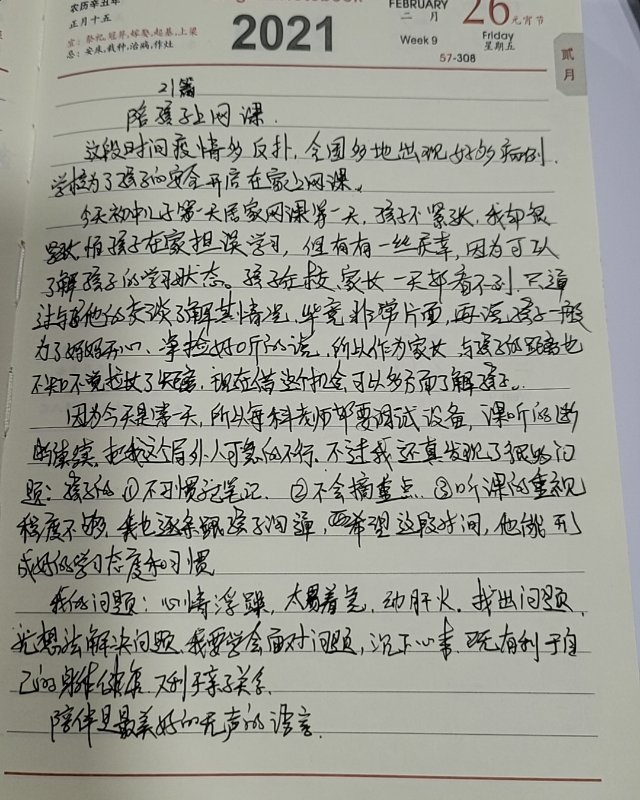 农历辛丑年
正月十五
宜：祭祀,冠笄,嫁娶,起基,上梁
忌：安床,栽种,治病,作灶
2021
FEBRUARY
二 月
26
元宵节
Week 9
Friday
星期五
57-308
贰月
21篇
陪孩子上网课.
这段时间疫情多反扑,全国多地出现好多病例.
学校为了孩子的安全开启在家上网课。
今天初中儿子第一天居家网课第一天,孩子不紧张,我却很
紧张,怕孩子在家担误学习,但有有一丝庆幸,因为可以
了解孩子的学习状态。孩子在校,家长一天都看不到,只通
过与他的交谈了解其情况,毕竟非常片面,再说,孩子一般
为了妈妈开心、拿捡好听的说,所以作为家长与孩子的距离也
不知不觉拉大了距离,现在借这个机会可以多方面了解孩子。
因为今天是第一天,所以每科老师都要调试设备,课听的断
断续续,把我这个局外人可急的不行.不过我还真发现了很多问
题：孩子的①不习惯记笔记.②不会摘重点.③听课的重视
程度不够.我也逐条跟孩子沟通,希望这段时间,他能形
成好的学习态度和习惯
我的问题：心情浮躁,太易着急,动肝火.找出问题,
光想法解决问题.我要学会面对问题,沉下心来.既有利于自
己的身体健康.又利于亲子关系.
陪伴是最美好的无声的语言.